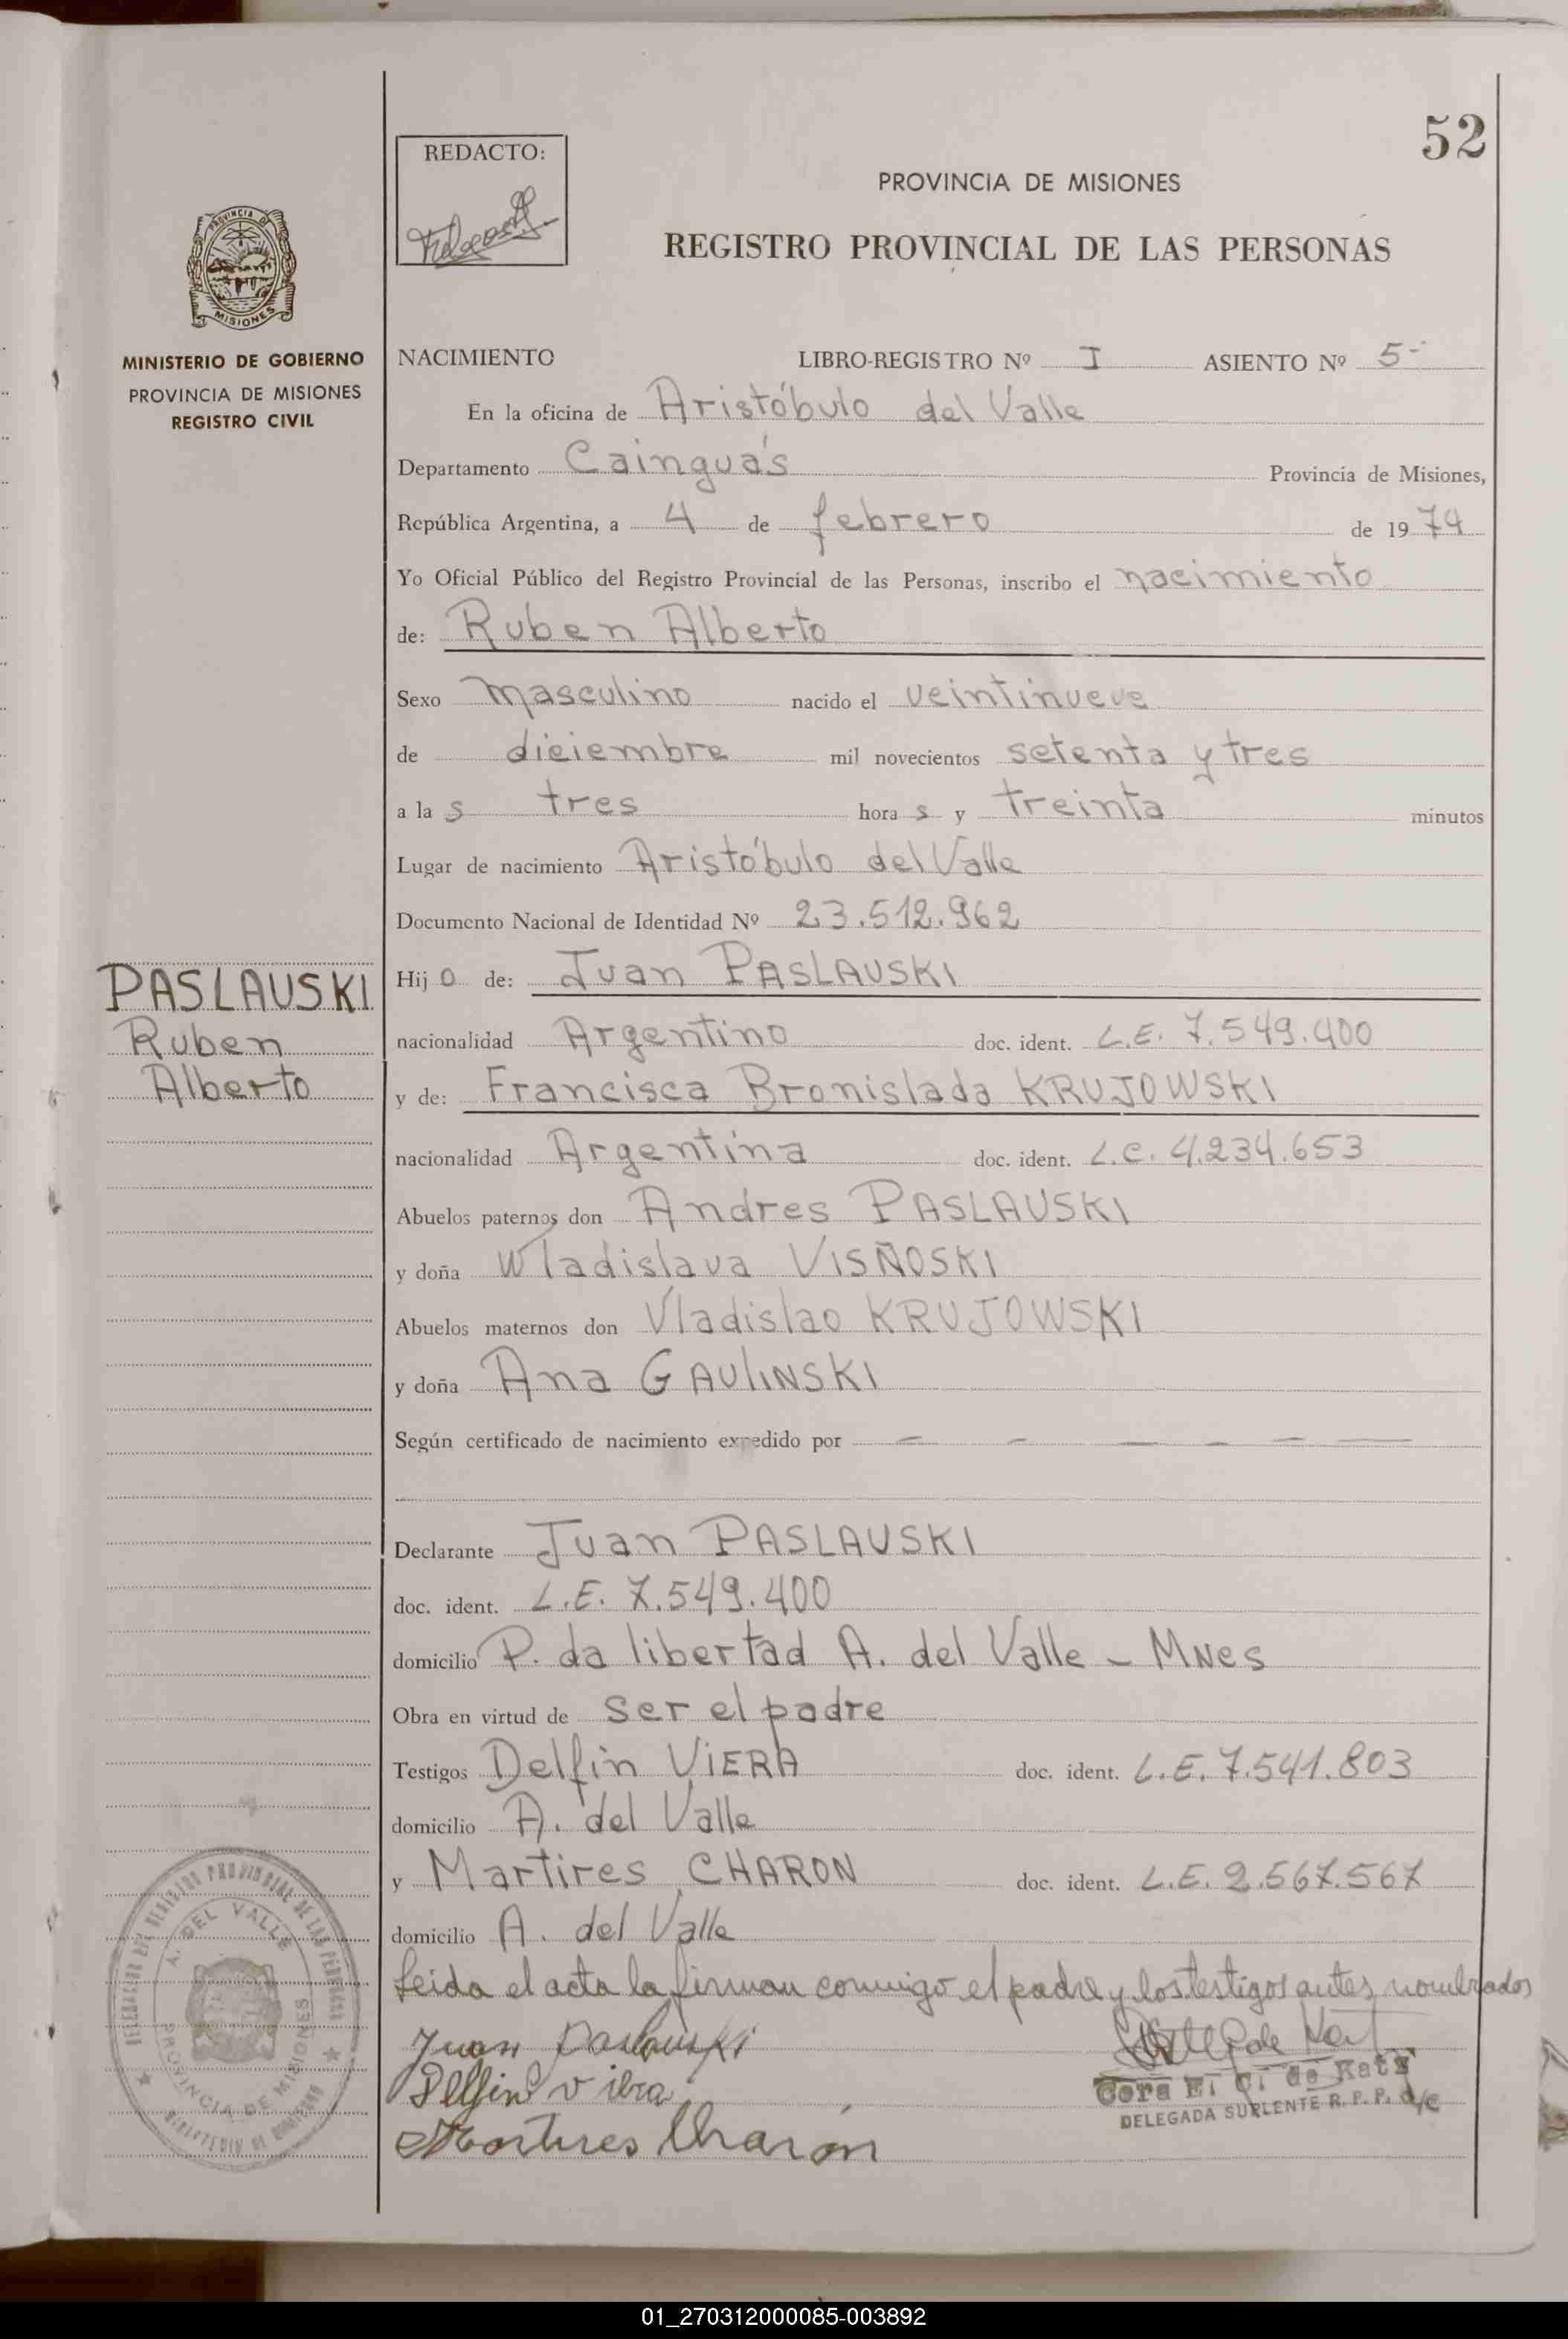 52
REDACTO:
PROVINCIA DE MISIONES
REGISTRO PROVINCIAL DE LAS PERSONAS
PROVINCIA DE
MISIONES
MINISTERIO DE GOBIERNO
PROVINCIA DE MISIONES
REGISTRO CIVIL
NACIMIENTO LIBRO-REGISTRO Nº I ASIENTO Nº 5-
En la oficina de Aristóbulo del Valle
Departamento Cainguás Provincia de Misiones,
República Argentina, a 4 de febrero de 1974
Yo Oficial Público del Registro Provincial de las Personas, inscribo el nacimiento
de: Ruben Alberto
Sexo masculino nacido el veintinueve
de diciembre mil novecientos setenta y tres
a la s tres hora s y treinta minutos
Lugar de nacimiento Aristóbulo del Valle
Documento Nacional de Identidad Nº 23.512.962
PASLAUSKI
Ruben
Alberto
Hij o de: Juan PASLAUSKI
nacionalidad Argentino doc. ident. L.E. 7.549.400
y de: Francisca Bronislada KRUJOWSKI
nacionalidad Argentina doc. ident. L.C. 4.234.653
Abuelos paternos don Andres PASLAUSKI
y doña Wladislava VISÑOSKI
Abuelos maternos don Vladislao KRUJOWSKI
y doña Ana GAULINSKI
Según certificado de nacimiento expedido por — — — — — —
Declarante Juan PASLAUSKI
doc. ident. L.E. 7.549.400
domicilio P. da libertad A. del Valle - MNes
Obra en virtud de ser el padre
Testigos Delfin VIERA doc. ident. L.E. 7.541.803
domicilio A. del Valle
y Martires CHARON doc. ident. L.E. 2.567.567
domicilio A. del Valle
Leida el acta la firman conmigo el padre y los testigos antes nombrados
Juan Paslauski
Delfin Viera
Martires Charón
de Katz
DELEGADA SUPLENTE R. P. P. a/c
A. DEL VALLE
PROVINCIA DE MISIONES
01_270312000085-003892